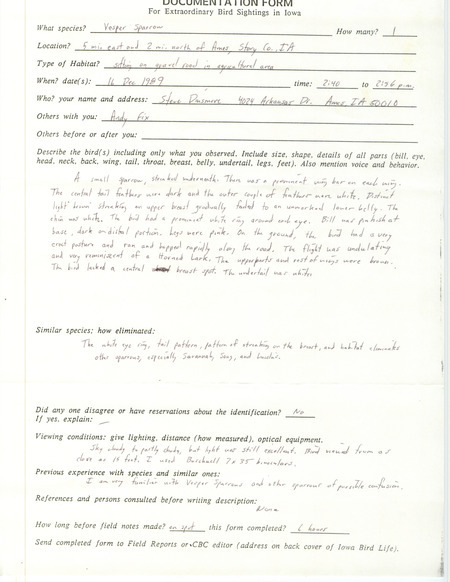 DOCUMENTATION FORM
For Extraordinary Bird Sightings in Iowa
What species? Vesper Sparrow How many? 1
Location? 5 mi. east and 2 mi. north of Ames, Story Co., IA
Type of Habitat? sitting on gravel road in agricultural area
When? date(s): 16 Dec 1989 time: 2:40 to 2:56 p.m.
Who? your name and address: Steve Dinsmore 4024 Arkansas Dr. Ames, IA 50010
Others with you: Andy Fix
Others before or after you:
Describe the bird(s) including only what you observed. Include size, shape, details of all parts (bill, eye,
head, neck, back, wing, tail, throat, breast, belly, undertail, legs, feet). Also mention voice and behavior.
A small sparrow, streaked underneath. There was a prominent wing bar on each wing.
The central tail feathers were dark and the outer couple of feathers were white. Distinct
light brown streaking on upper breast gradually faded to an unmarked lower belly. The
chin was white. The bird had a prominent white ring around each eye. Bill was pinkish at
base, dark on distal portion. Legs were pink. On the ground, the bird had a very
erect posture and ran and hopped rapidly along the road. The flight was undulating
and very reminiscent of a Horned Lark. The upperparts and rest of wings were brown.
The bird lacked a central breast spot. The undertail was white.
Similar species; how eliminated:
The white eye ring, tail pattern, pattern of streaking on the breast, and habitat eliminates
other sparrows, especially Savannah, Song, and Lincoln's.
Did any one disagree or have reservations about the identification? No
If yes, explain: —
Viewing conditions: give lighting, distance (how measured), optical equipment.
Sky cloudy to partly cloudy, but light was still excellent. Bird viewed from as
close as 15 feet. I used Bushnell 7x35 binoculars.
Previous experience with species and similar ones:
I am very familiar with Vesper Sparrows and other sparrows of possible confusion.
References and persons consulted before writing description:
none
How long before field notes made? on spot this form completed? 6 hours
Send completed form to Field Reports or CBC editor (address on back cover of Iowa Bird Life).